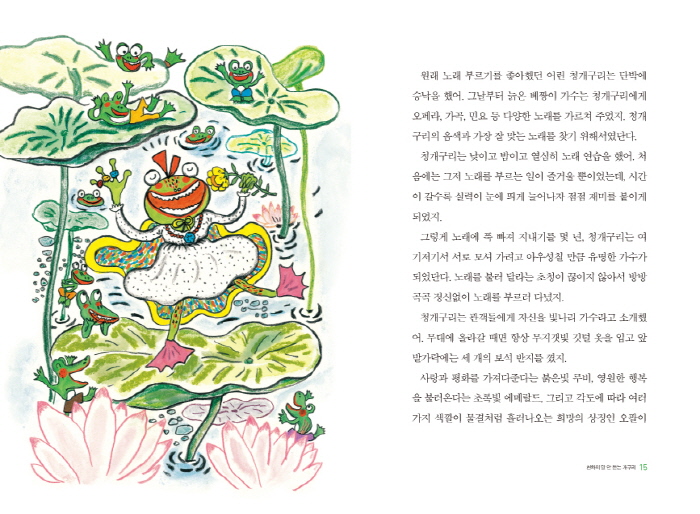 원래 노래 부르기를 좋아했던 어린 청개구리는 단박에
승낙을 했어. 그날부터 늙은 베짱이 가수는 청개구리에게
오페라, 가곡, 민요 등 다양한 노래를 가르쳐 주었지. 청개
구리의 음색과 가장 잘 맞는 노래를 찾기 위해서였단다.
청개구리는 낮이고 밤이고 열심히 노래 연습을 했어. 처
음에는 그저 노래를 부르는 일이 즐거울 뿐이었는데, 시간
이 갈수록 실력이 눈에 띄게 늘어나자 점점 재미를 붙이게
되었지.
그렇게 노래에 푹 빠져 지내기를 몇 년, 청개구리는 여
기저기서 서로 모셔 가려고 아우성칠 만큼 유명한 가수가
되었단다. 노래를 불러 달라는 초청이 끊이지 않아서 방방
곡곡 정신없이 노래를 부르러 다녔지.
청개구리는 관객들에게 자신을 빛나리 가수라고 소개했
어. 무대에 올라갈 때면 항상 무지갯빛 깃털 옷을 입고 앞
발가락에는 세 개의 보석 반지를 꼈지.
사랑과 평화를 가져다준다는 붉은빛 루비, 영원한 행복
을 불러온다는 초록빛 에메랄드, 그리고 각도에 따라 여러
가지 색깔이 물결처럼 흘러나오는 희망의 상징인 오팔이
개구리 15